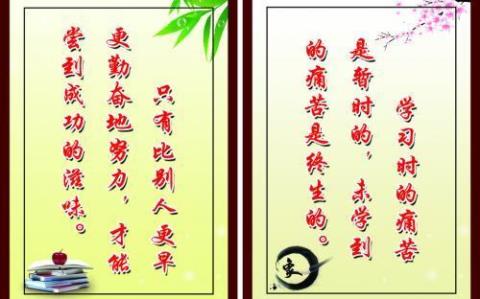 只有比别人更早
更勤奋地努力,才能
尝到成功的滋味。
学习时的痛苦
是暂时的,未学到
的痛苦是终生的。